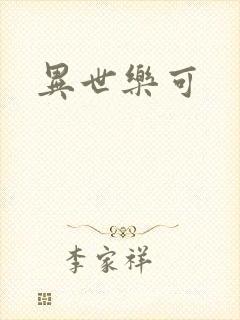 異世樂可
李家祥